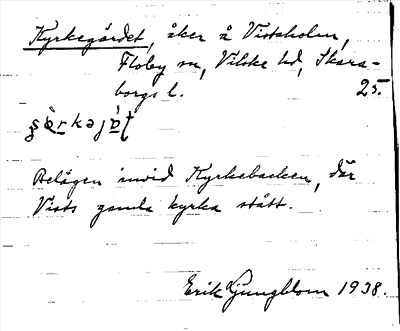 Kyrkegärdet, åker å Vistaholm,
Floby sn, Vilske hd, Skara-
borgs l. 25.
Belägen invid Kyrkebacken, där
Vists gamla kyrka stått.
Erik Ljungblom 1938.